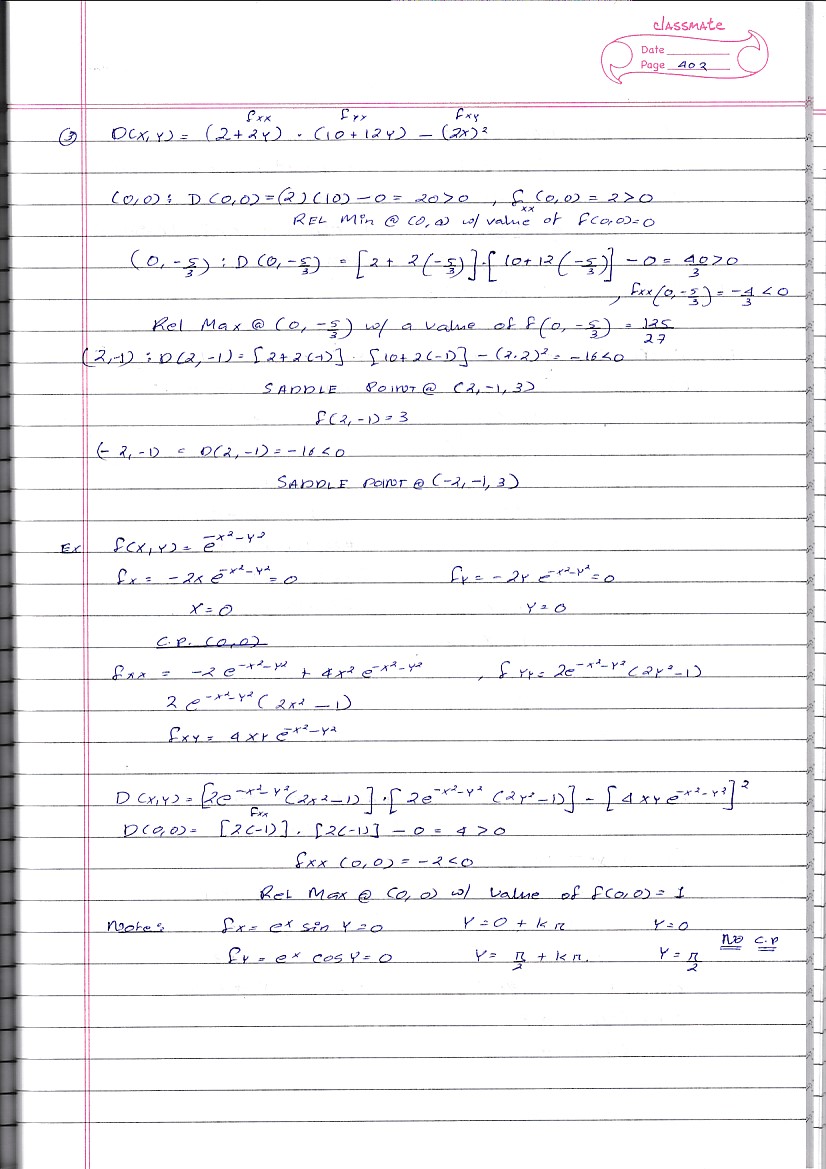 classmate
Date
Page 402
fxx fyy fxy
③ D(x,y) = (2+2y) · (10+12y) - (2x)²
(0,0): D(0,0) = (2)(10) - 0 = 20>0 , fxx (0,0) = 2>0
REL Min @ (0,0) w/ value of f(0,0)=0
(0,-5/3) : D(0,-5/3) = [2 + 2(-5/3)]·[10+12(-5/3)] - 0 = 40/3 >0
, fxx(0,-5/3) = -4/3 <0
Rel Max @ (0, -5/3) w/ a value of f(0,-5/3) = 125/27
(2,-1) : D(2,-1) = [2+2(-1)] · [10+2(-1)] - (2.2)² = -16<0
SADDLE POINT @ (2,-1,3)
f(2,-1)=3
(-2,-1) = D(2,-1) = -16<0
SADDLE POINT @ (-2,-1,3)
Ex f(x,y) = e^-x²-y²
fx = -2x e^-x²-y² = 0 fy = -2y e^-x²-y² = 0
x=0 y=0
C.P. (0,0)
fxx = -2e^-x²-y² + 4x² e^-x²-y² , fyy = 2e^-x²-y² (2y²-1)
2 e^-x²-y² (2x² - 1)
fxy = 4xy e^-x²-y²
D(x,y) = [2e^-x²-y² (2x²-1)]·[2e^-x²-y² (2y²-1)] - [4xy e^-x²-y²]²
fxx
D(0,0) = [2(-1)] · [2(-1)] - 0 = 4 >0
fxx (0,0) = -2<0
Rel Max @ (0,0) w/ value of f(0,0) = 1
Note: fx = e^x sin y = 0 y = 0 + kπ y=0
fy = e^x cos y = 0 y = π/2 + kπ. y = π/2 no c.p